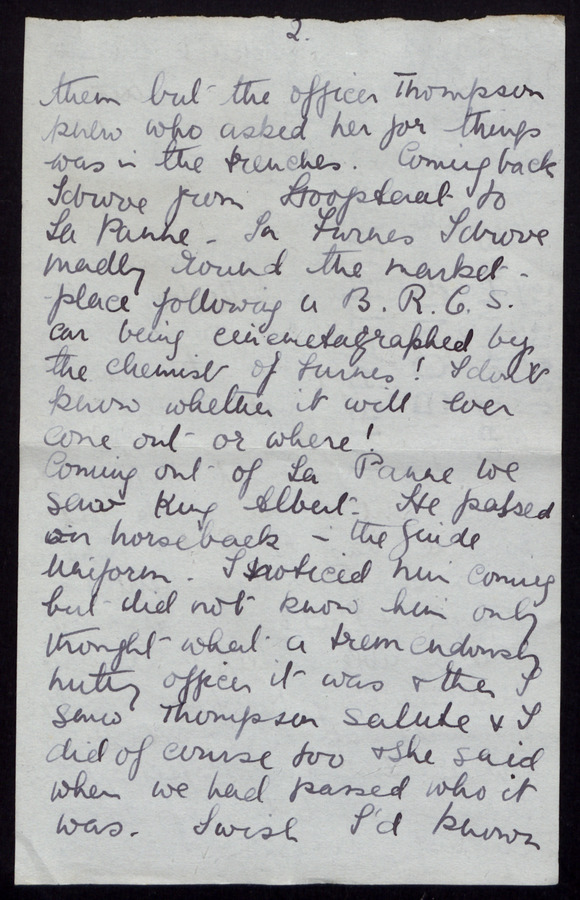 2.
them but the officer Thompson
knew who asked her for things
was in the trenches. Coming back
I drove from Hoogstaat to
La Panne - In Furnes I drove
madly round the market -
place following a B. R. C. S.
car being cinemetagraphed by
the chemist of Furnes! I don't
know whether it will ever
come out or where!
Coming out of La Panne we
saw King Albert. He passed
on horseback - the Guide
Uniform. I noticed him coming
but did not know him only
thought what a tremendously
nutty officer it was & then I
saw Thompson salute & I
did of course too & she said
when we had passed who it
was. I wish I'd known